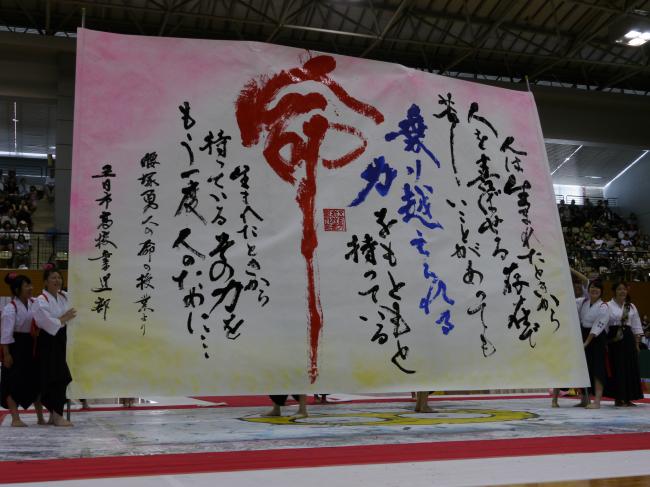 人は生まれたときから
人を喜ばせる存在で
苦しいことがあっても
乗り越えられる
力をもともと
持っている
命
生まれたときから
持っているその力を
もう一度人のために…
腰塚勇人の命の授業より
五日市高校書道部